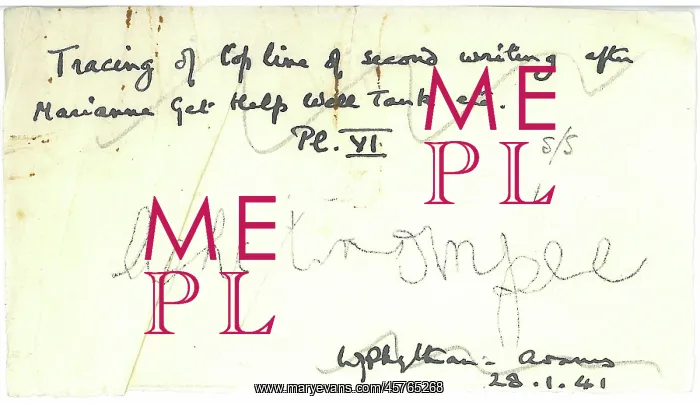 Tracing of top line of second writing after
Marianne Get Help Well Tank etc.
Pl. VI.
S/S
ME
PL
ME
PL
trompee
W J Phythian-Adams
28.1.41
www.maryevans.com/45765268